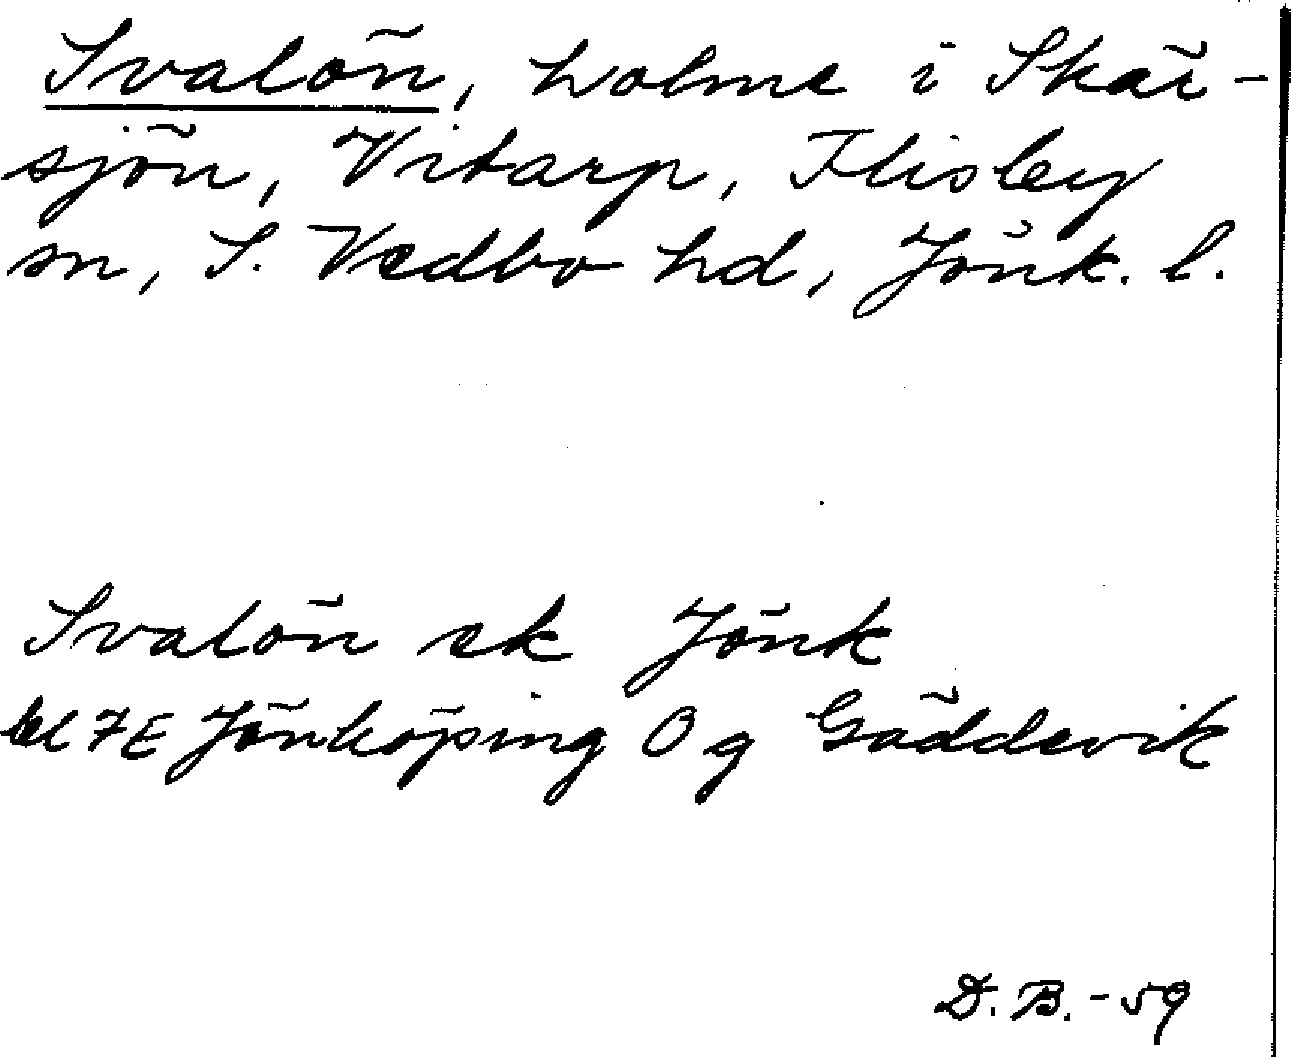 Svalön, holme i Skär-
sjön, Vitarp, Flisby
sn, S. Vedbo hd, Jönk. l.
Svalön ek Jönk
bl 7E Jönköping O g Gäddevik
D. B. - 59